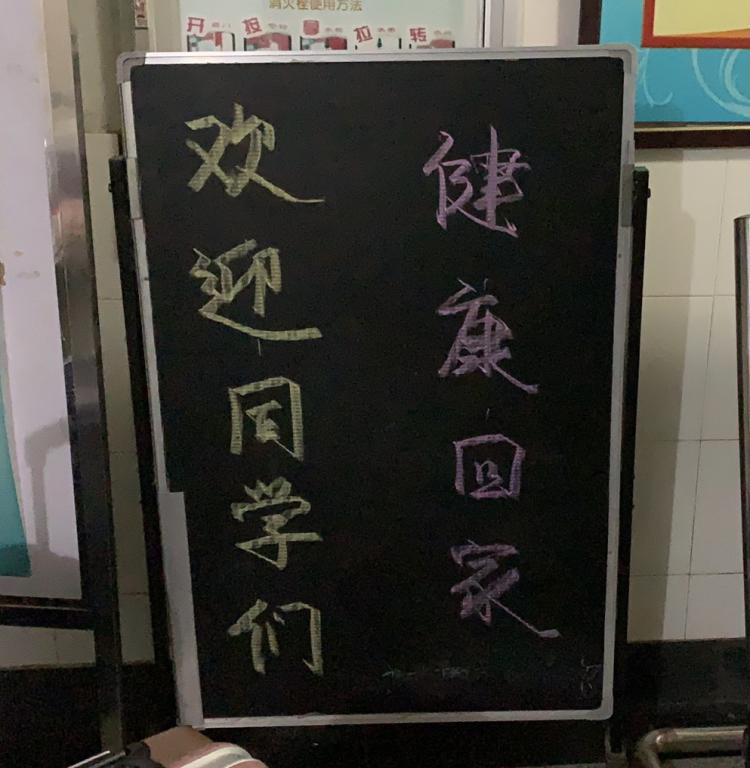 消火栓使用方法
开 按 拉 转
欢迎同学们
健康回家